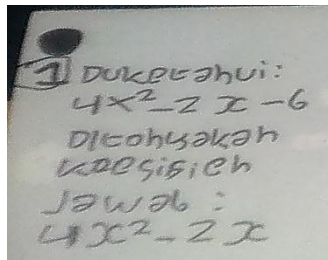 1 Diketahui:
4x²-2x-6
Ditanyakan
Koesisien
Jawab:
4x²-2x